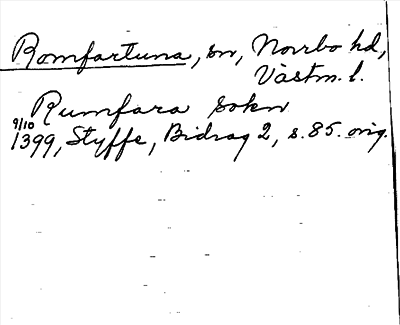 Romfartuna, sn, Norrbo hd,
Västm. l.
Rumfara sokn
9/10
1399, Styffe, Bidrag 2, s. 85. orig.